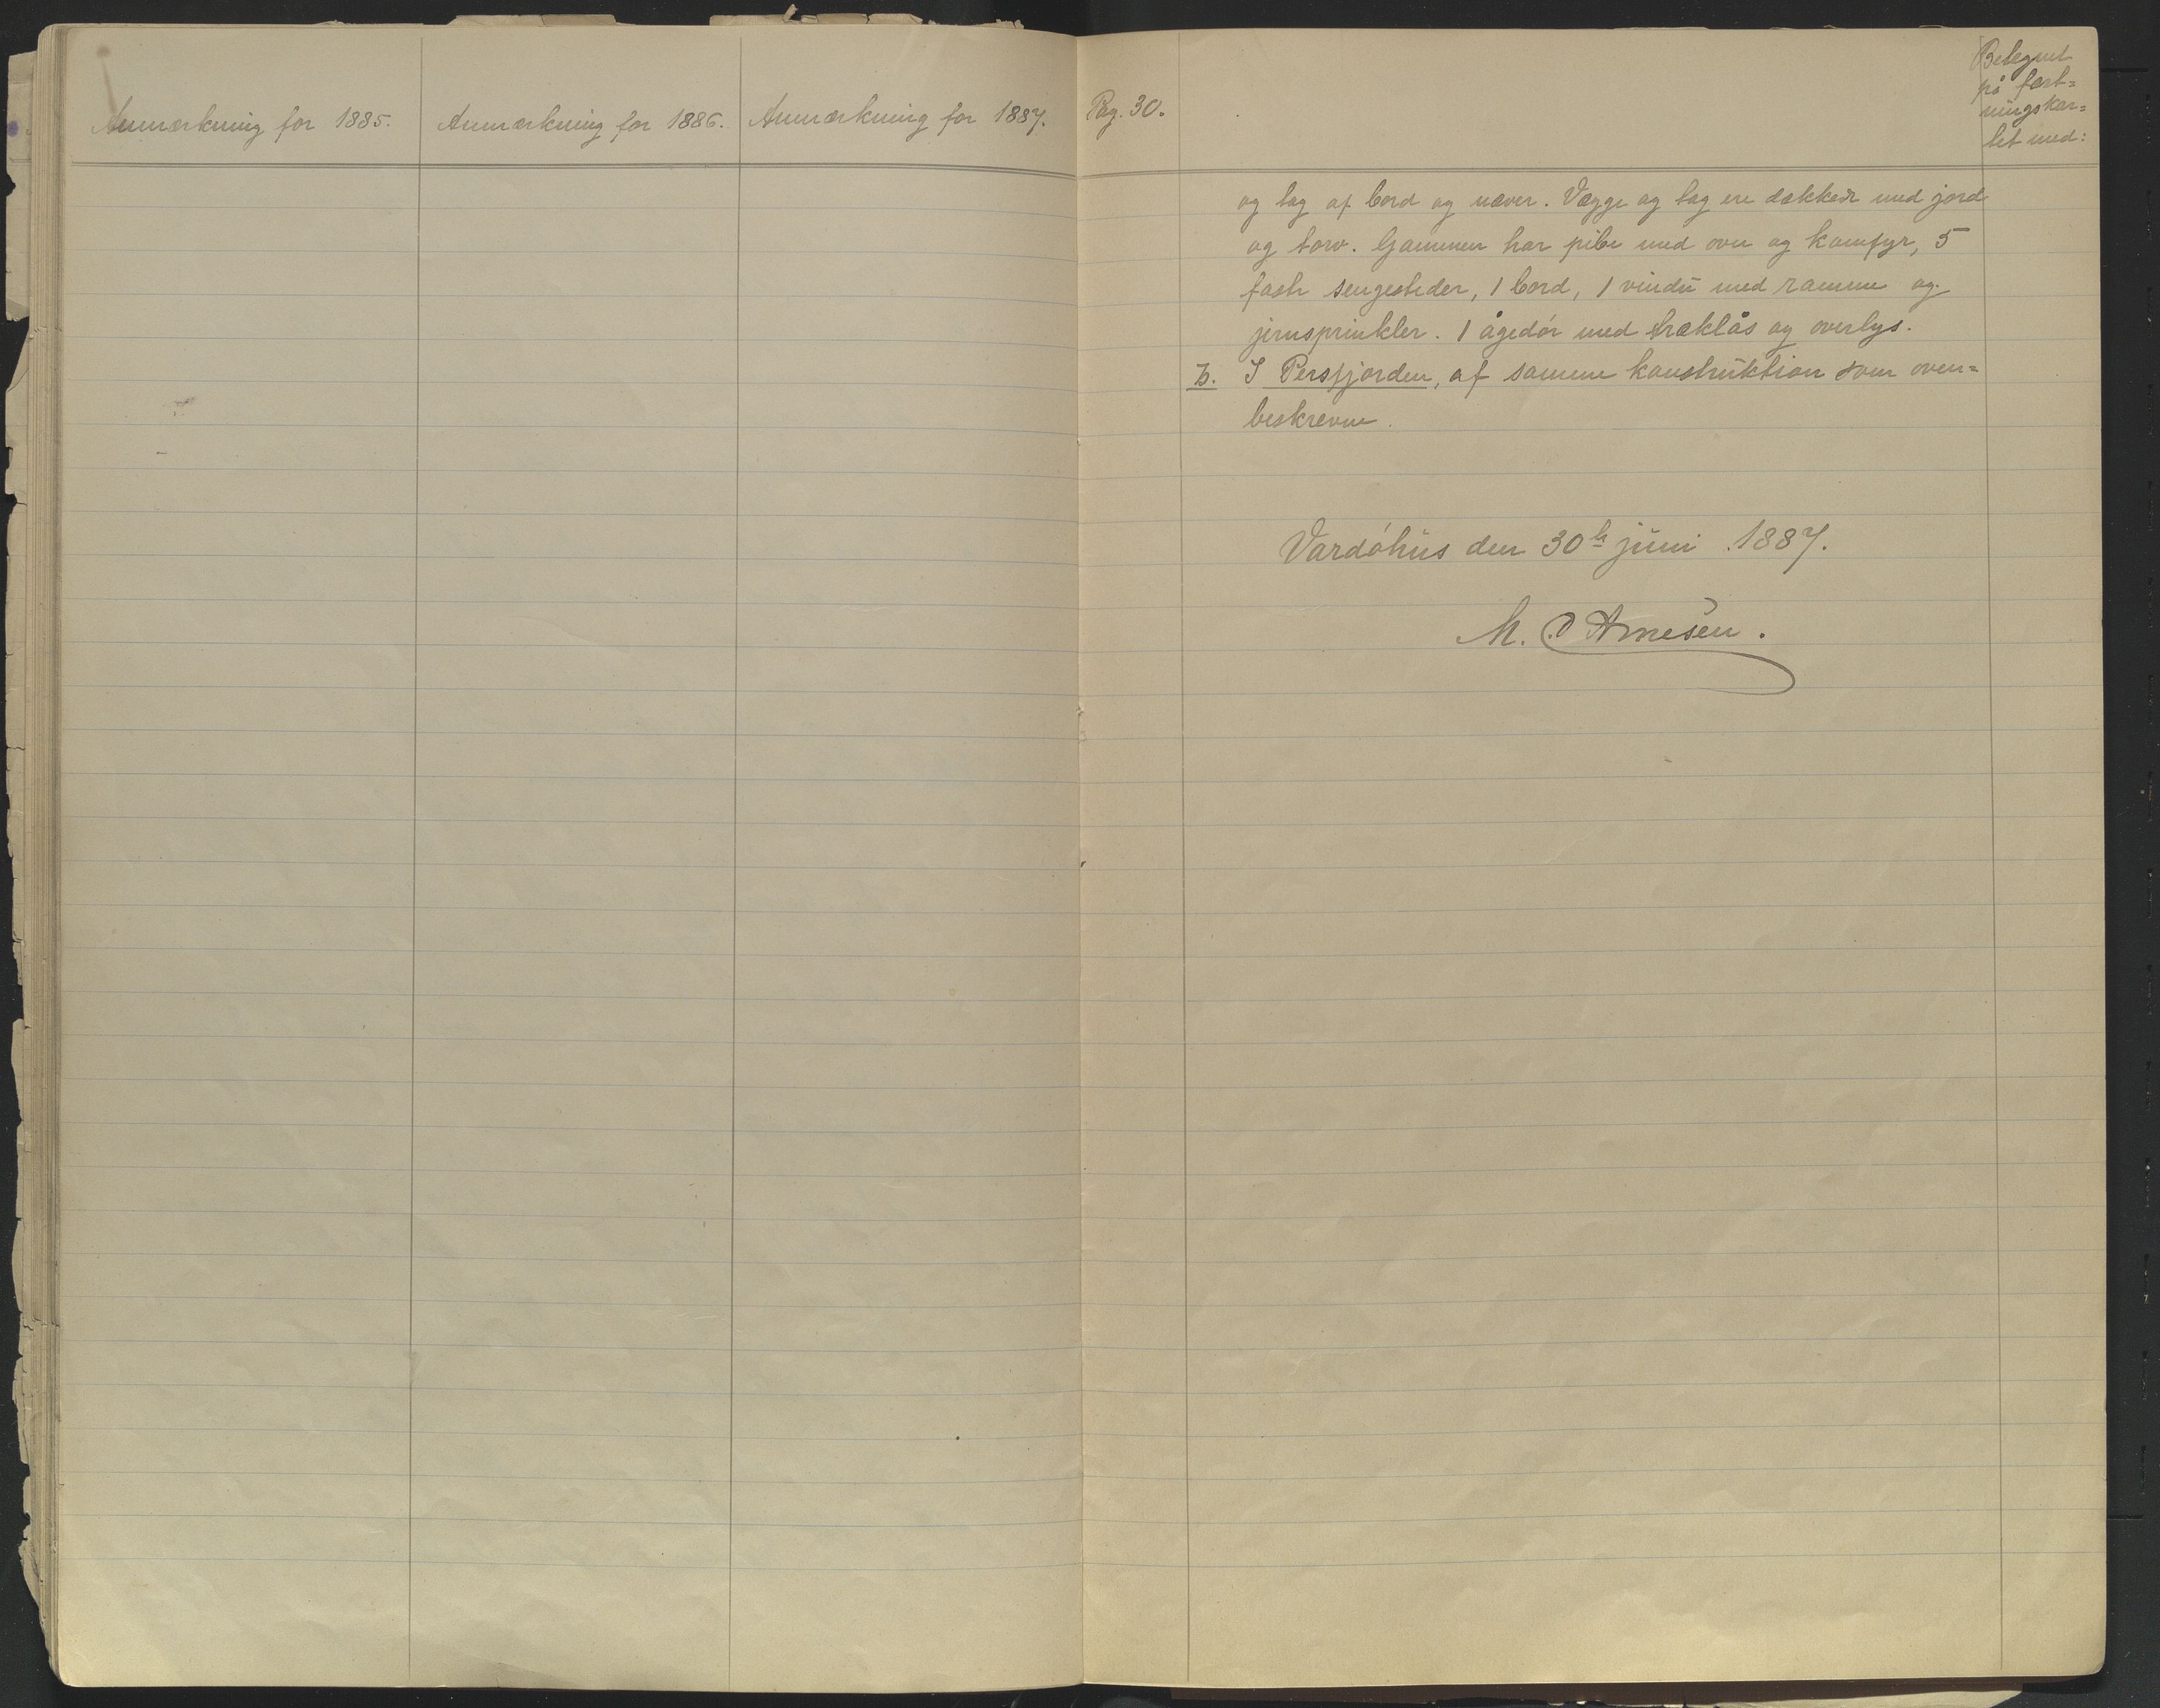 Anmærkning for 1885.
Anmærkning for 1886.
Anmærkning for 1887.
Pag. 30.
Betegnet
på fæst=
ningskar=
tet med:
og tag af bord og næver. Vægge og tag ere dækket med jord
og torv. Gammen har pibe med ovn og komfyr, 5
faste sengesteder, 1 bord, 1 vindu med ramme og
jernsprinkler. 1 ågedör med træklås og overlys.
b. I Persfjorden, af samme konstruktion som oven=
beskrevne.
Vardöhus den 30te juni 1887.
M. Arnesen.